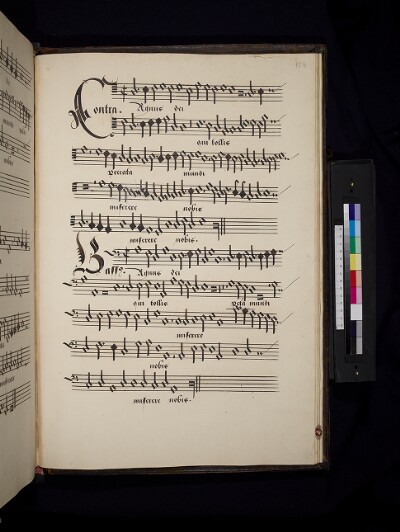 Contra. Agnus dei
qui tollis
peccata mundi
miserere nobis
miserere nobis.
Bass9. Agnus dei
qui tollis pctā mundi
miserere
nobis
miserere nobis.